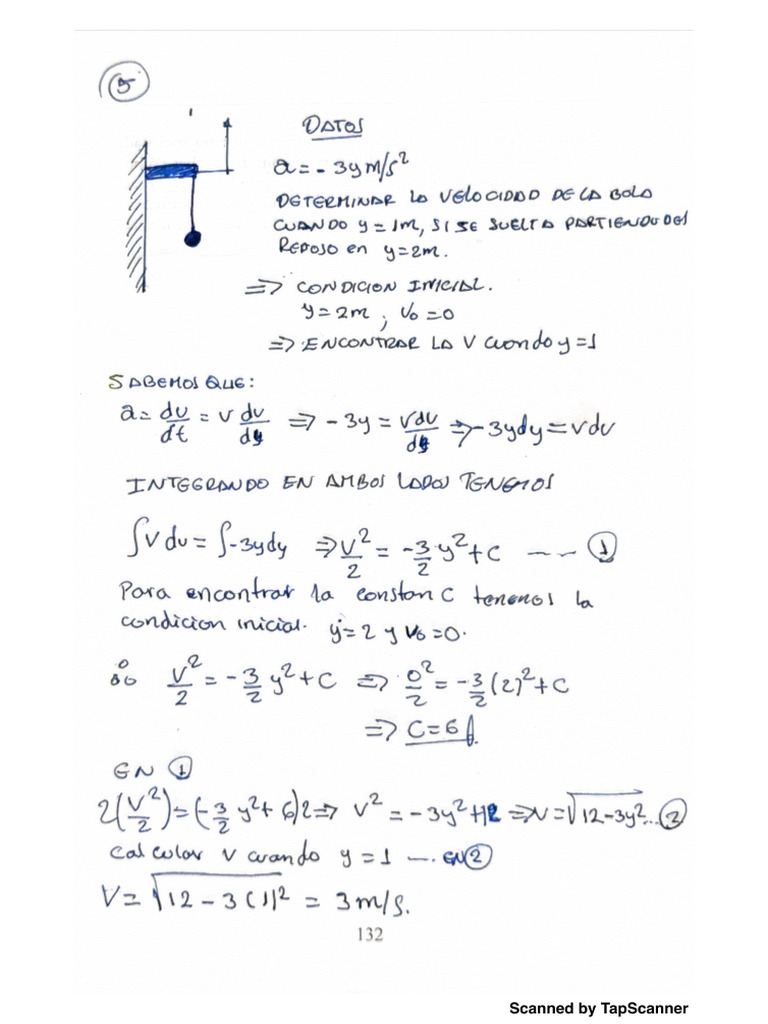 5
DATOS
a = - 3y m/s²
DETERMINAR LA VELOCIDAD DE LA BOLA
CUANDO y = 1m, SI SE SUELTA PARTIENDO DEL
REPOSO en y = 2m.
=> CONDICION INICIAL.
y = 2m ; V₀ = 0
=> ENCONTRAR LA V cuando y = 1
SABEMOS QUE:
a = dv/dt = v dv/dy => - 3y = vdv/dy => - 3ydy = vdv
INTEGRANDO EN AMBOS LADOS TENEMOS
∫v dv = ∫-3ydy => v²/2 = -3/2 y² + C --- 1
Para encontrar la constan C tenemos la
condicion inicial. y = 2 y V₀ = 0.
∴ v²/2 = -3/2 y² + C => 0²/2 = -3/2 (2)² + C
=> C = 6
EN 1
2(v²/2) = (-3/2 y² + 6)2 => v² = -3y² + 12 => v = √12 - 3y² ... 2
Calcular v cuando y = 1 --- EN 2
V = √12 - 3(1)² = 3 m/s.
132
Scanned by TapScanner